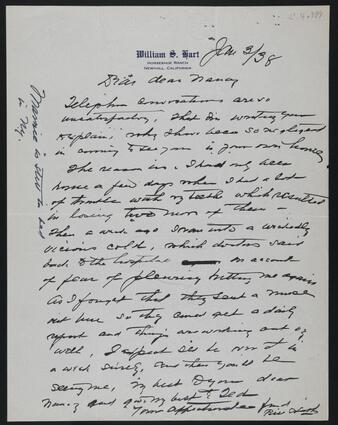 William S. Hart
HORSESHOE RANCH
NEWHALL, CALIFORNIA
Jan 3/38
dear Nancy
Telephone conversations are so
unsatisfactory, that I'm writing you
to explain, why I have been so negligent
in coming to see you in your own home,
The reason is, I had only been
home a few days when I had a lot
of trouble with my teeth which resulted
in losing two more of them
then a week ago I ran into a wickedly
vicious cold, which doctors said
back to the hospital on account
of fear of pleurisy hitting me again
As I fought that they sent a nurse
out here so they could get a daily
report and things are working out O.K.
well, I expect I'll be over it in
a week surely, and then you'll be
seeing me, My best to you dear
Nancy and give my best to Ted
Your affectionate friend
Bill Hart
Mamie is still in bed
in N.Y.